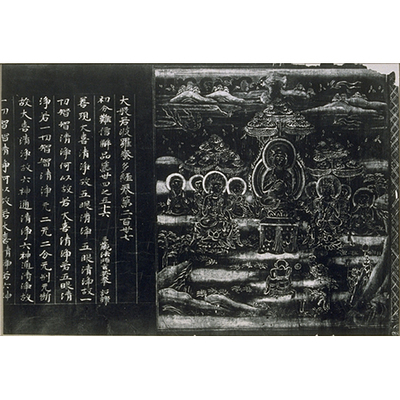 大般若波羅蜜多經卷第二百卅七
初分難信解品第卅四之五十六 三藏法師玄奘奉 詔譯
善現大喜清淨故五眼清淨五眼清淨故一
切智智清淨何以故若大喜清淨若五眼清
淨若一切智智清淨无二无二分无別无斷
故大喜清淨故六神通清淨六神通清淨故
一切智智清淨何以故若大喜清淨若六神